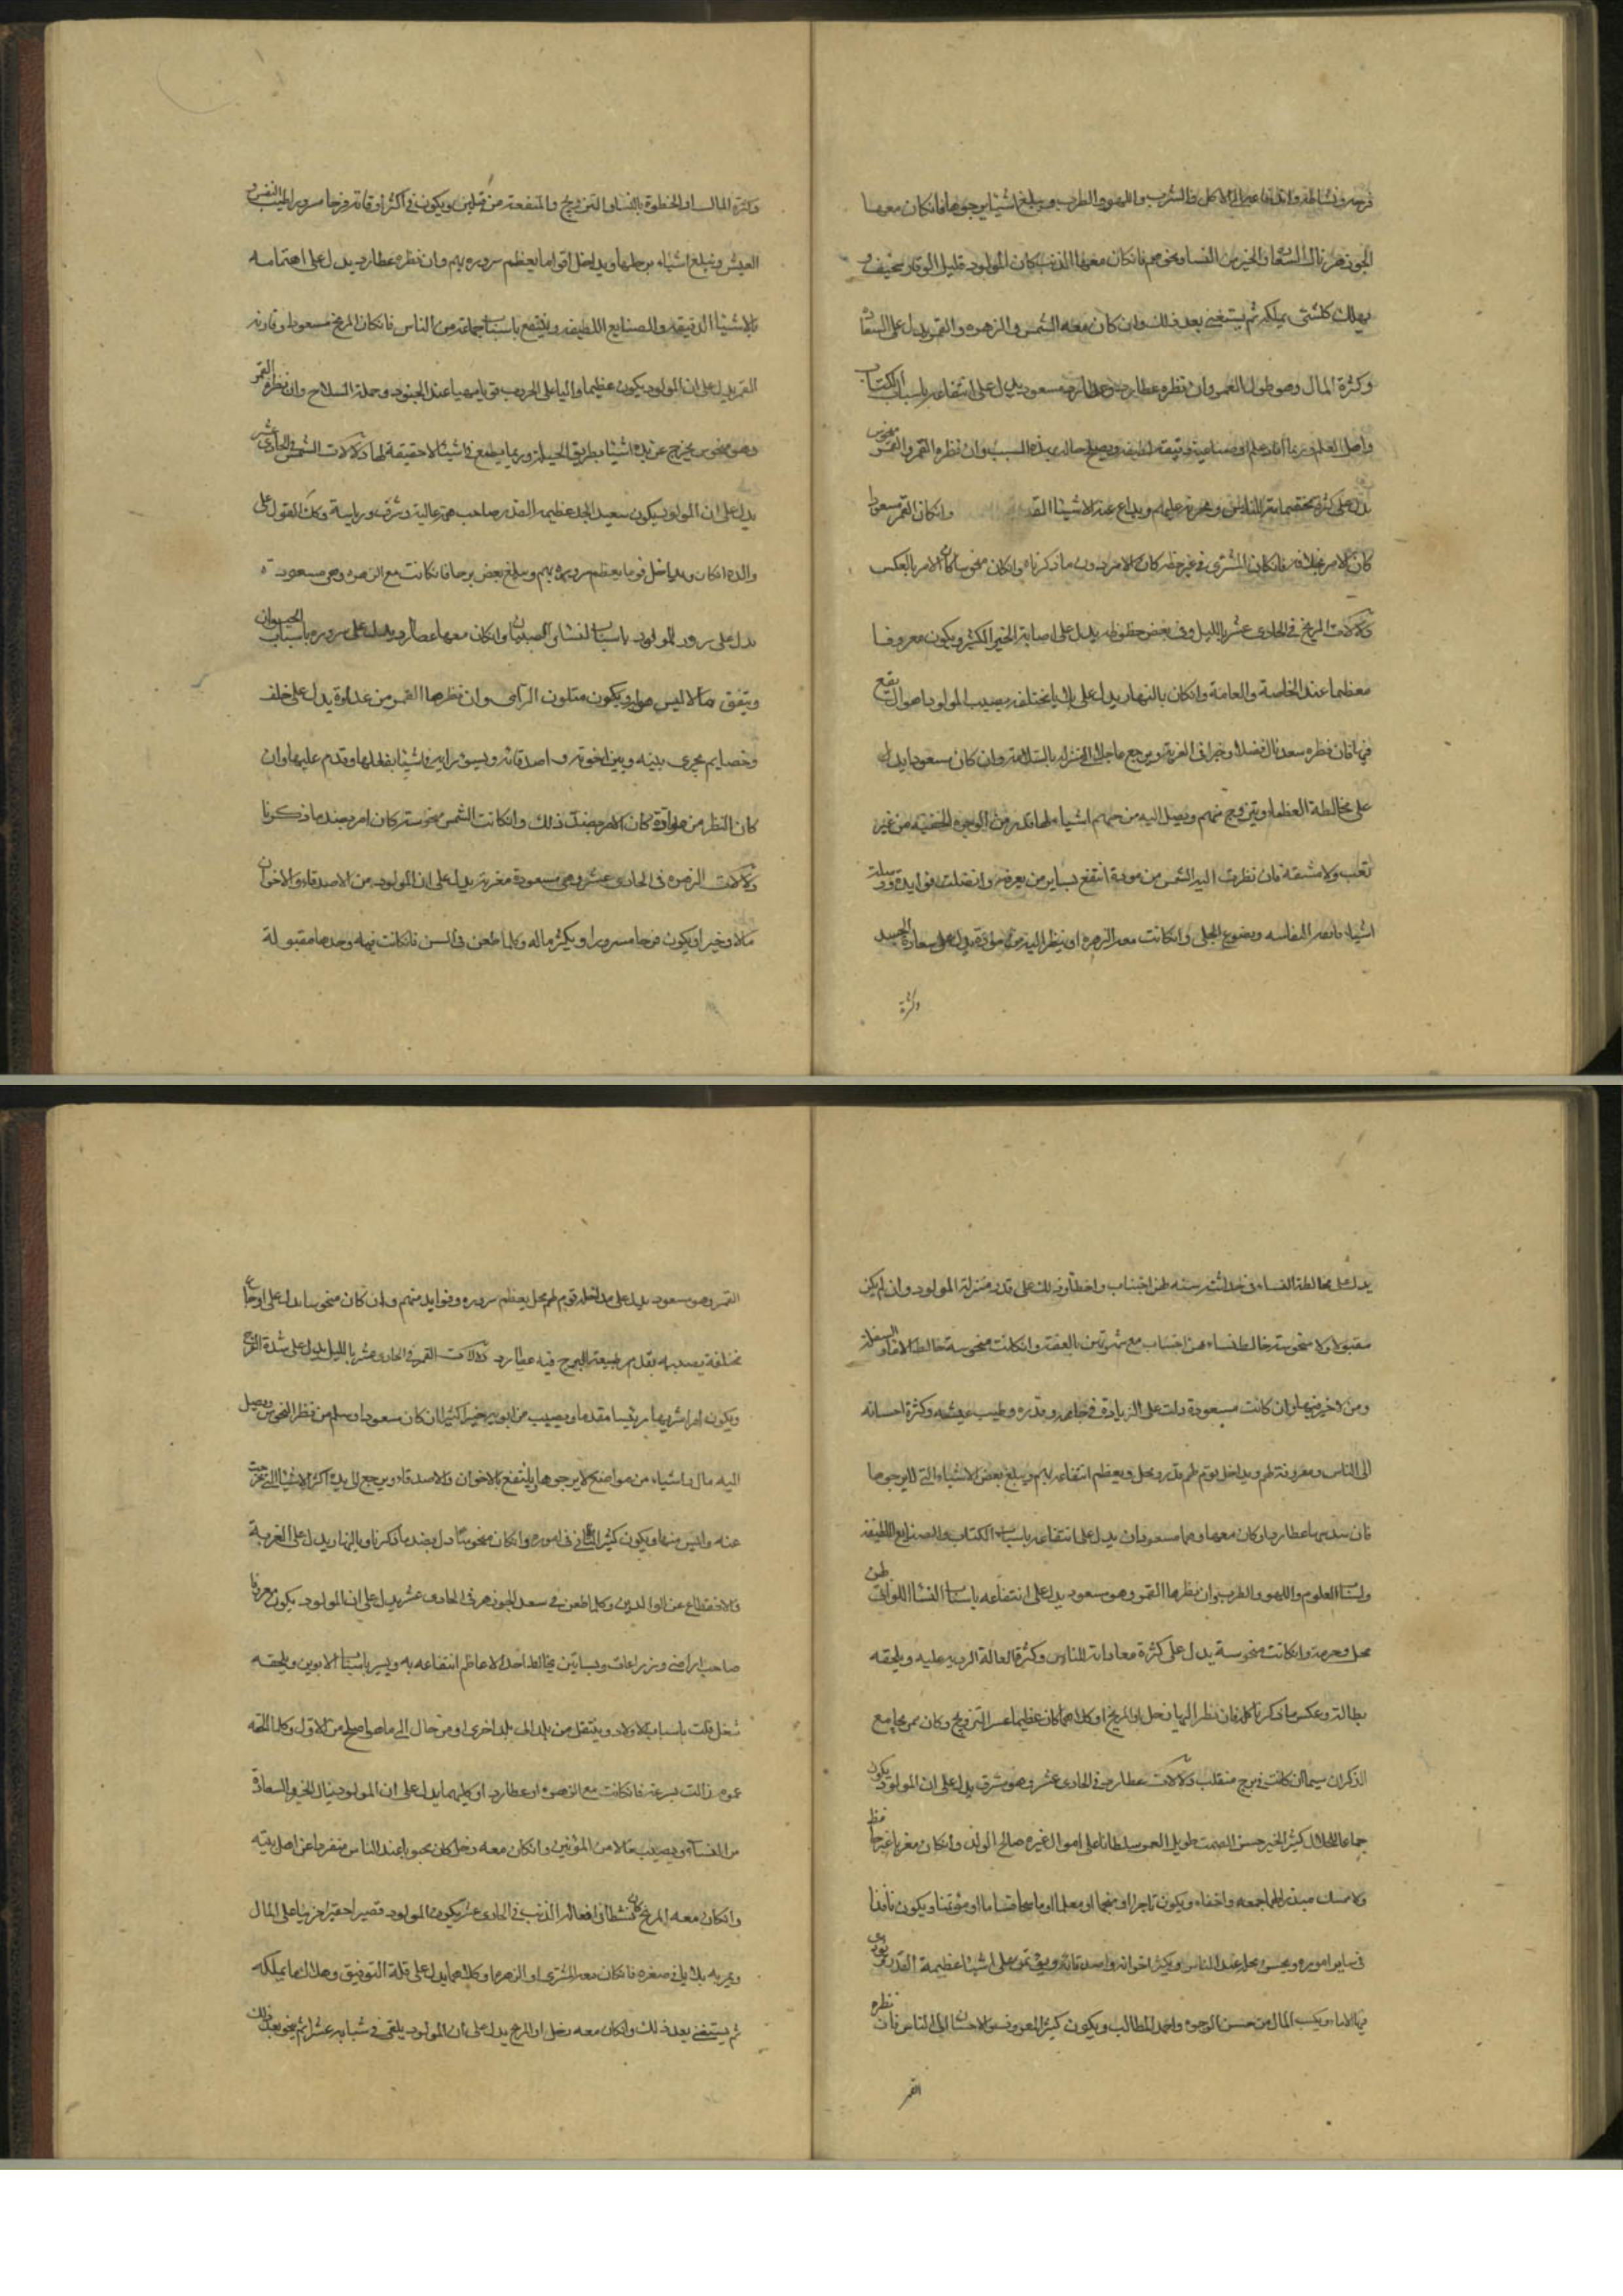 فرحه ونشاطه وانتفاعه الاكل والشرب واللهو والطرب ويبلغ اشيا يرجوها فانكان معهما
الجوزهر نال السعادة والخير من النسا ونحوهم فانكان معهما الذنب كان المولود قليل الوقار سخيف و
يهلك كلشئ يملكه ثم يستغنى بعد ذلك وان كان معه الشمس والزهره والقمر يدل على السعادة
وكثرة المال وطول العمر وان نظره عطارد وعطارد مسعود يدل على انتفاعه باسباب الكتاب
واهل العلم وربما افاد علم او صناعة دقيقه لطيفه ويصلح حاله بهذا السبب وان نظره القمر والقمر منحوس
يدل على كثرة مخاصماته للناس وجرءته عليهم ويداع عنه الاشيا وانكان القمر مسعودا
كان الامر بخلافه فانكان المشترى في غير حظه كان الامر دون ما ذكرناه وانكان منحوسا كان الامر بالعكس
دلالات المريخ في الحادى عشر بالليل وفى بعض حظوظه يدل على اصابة الخير الكثير ويكون معروفا
معظما عند الخاصة والعامة وانكان بالنهار يدل على بلايا مختلفه يصيب المولود اهوال يقع
فيها فان نظره سعد نال فضلا وخيرا في الغربة ويرجع عاجلا الى منزله بالسلامة وان كان مسعودا يدل
على مخالطة العظما ويتزوج منهم ويصل اليه من جهتهم اشيا لها قدر من الوجوه الخفيه من غير
تعب ولا مشقة فان نظرت اليه الشمس من مودة انتفع بساير من يعرفه واتصلت فوايده ووصلته
اشيا فاتقه النفاسه ويضوع الحلى وانكانت معه الزهرة او ينظر اليه من مودة يدل على سعادة الجسد
وكثرة
وكثرة المال والحظوة بالنسا والتزويج والمنفعة من قبلهن ويكون في اكثر اوقاته فرحا مسرورا طيب النفس و
العيش ويبلغ اشياء يرجوها ويداخل اقواما يعظم سروره بهم وان نظره عطارد يدل على اهتمامه
بالاشيا الدقيقه والصنايع اللطيفه وينتفع باسباب جماعة من الناس فانكان المريخ مسعودا وقارنه
القمر يدل على ان المولود يكون عظيما واليا على الحروب قويا مهيبا عند الجنود وحملة السلاح وان نظره القمر
وهو منحوس يخرج عن يده اشيا بطريق الحيله وربما يطمع في اشيا لا حقيقة لها دلالات الشمس في الحادى عشر
يدل على ان المولود يكون سعيد الجد عظيم القدر صاحب همة عالية وشرف ورياسة وكك القول على
والده انكان ويداخل قوما يعظم سروره بهم ويبلغ بعض يرجا فانكانت مع الزهره وهى مسعودة
يدل على سرور المولود باسباب النسا والصبيان وانكان معها عطارد يدل على سروره باسباب الحيوان
ويتفق مالا ليس هو له ويكون متلون الرأى وان نظرها القمر من عداوة يدل على خلف
وخصايم يجرى بينه وبين اخوته واصدقائه ويسوء رايه في اشيا يفعلها ويندم عليها وان
كان النظر من موادة كان الامر بضد ذلك وانكانت الشمس منحوسة كان امره بضد ما ذكرنا
دلالات الزهره في الحادى عشر وهى مسعودة مغربة يدل على ان المولود من الاصدقاء والاخوان
مالا وخيرا ويكون فرحا مسرورا ويكثر ماله وكلما طعن في السن فانكانت فيه وحدها مقبولة
يدل على مخالطة النساء في حداثة سنه لهن اجتناب واخطار وذلك على قدر منزلة المولود وان لم يكن
مقبولة ولا منحوسة خالط نساء هن احتساب مع شهرتهن بالعفة وانكانت منحوسة خالط الاماء والسفله
ومن لا خير فيها وان كانت مسعودة دلت على الزيادة في جاهه وقدره وطيب عيشه وكثرة احسانه
الى الناس ومعرفته لهم ويداخل قوم لهم قدر ومحل ويعظم انتفاعه بهم ويبلغ بعض الاشياء التى يرجوها
فان سدسها عطارد او كان معها وهما مسعودان يدل على انتفاعه باسباب الكتاب والصنايع اللطيفه
واسباب العلوم واللهو والطرب وان نظرها القمر وهو مسعود يدل على انتفاعه باسباب النسا اللواتى لهن
محل وحرمة وانكانت منحوسة يدل على كثرة معاداته للناس وكثرة القالة الرديه عليه ويلحقه
بطالة وعكس ما ذكرنا كله فان نظر اليها زحل او المريخ او كلاهما كان عظيما عسر التزويج وكان ممن يجامع
الذكران سيما ان كانت في برج منقلب دلالات عطارد في الحادى عشر وهو مشرق يدل على ان المولود يكون
جماعا للمال كثير الخير حسن الصمت طويل العمر سلطانا على اموال غيره صالح الولد وانكان مغربا غير حافظ
ولا ممسك مبذرا لما جمعه واخفاه ويكون تاجرا او منجما او معلما او ماسحا قساما او مؤتمنا ويكون نافذا
في ساير اموره ويحسن محله عند الناس ويكثر اخوانه واصدقائه ويؤتمن على اشيا عظيمة القدر يؤدى
فيها الامانه ويكسب المال من حسن الوجوه واحمد المطالب ويكون كثير المعروف والاحسان الى الناس فان نظره
القمر
القمر وهو مسعود يدل على مداخلة قوم لهم محل يعظم سروره وفوايد منهم وان كان منحوسا يدل على اوجاع
مختلفة يصيبه بقدر طبيعة البرج فيه عطارد دلالات القمر في الحادى عشر بالليل يدل على شدة الفرح
ويكون امرا شريفا رئيسا مقدما ويصيب من ابويه خيرا كثيرا ان كان مسعودا وسلم من نظر النحوس ويصل
اليه مال واشياء من مواضع لا يرجوها وينتفع بالاخوان والاصدقاء ويرجع الى يده اكثر الاشيا التى خرجت
عنه وايس منها ويكون كثير التأني في اموره وانكان منحوسا دل بضد ما ذكرنا وبالنهار يدل على الغربة
والانقطاع عن الوالدين وكلما طعن في سعد الجوزهر في الحادى عشر يدل على ان المولود يكون معروفا
صاحب اراضى وزراعات وبساتين يخالط احد الاعاظم انتفاعه به ويسر باسباب الابوين ويلحقه
شغل قلب باسباب الاولاد وينتقل من بلد الى بلد اخرى او من حال الى ما هو اصلح من الاول وكلما لحقه
غموم زالت بسرعة فانكانت مع الزهره او عطارد او كليهما يدل على ان المولود ينال الخير والسعادة
من النساء ويصيب مالا من المؤنثين وانكان معه زحل كان محبوبا عند الناس منفردا عن اهل بيته
وانكان معه المريخ كان نشطا في افعاله الذنب في الحادى عشر يكون المولود قصيرا حقيرا حزينا على المال
ويمر به بلايا في صغره فانكان معه المشترى او الزهره او كلاهما يدل على قلة التوفيق وهلاك ما يملكه
ثم يستغنى بعد ذلك وانكان معه زحل او المريخ يدل على ان المولود يلقى في شبابه عشرا ثم ينجو بعد ذلك